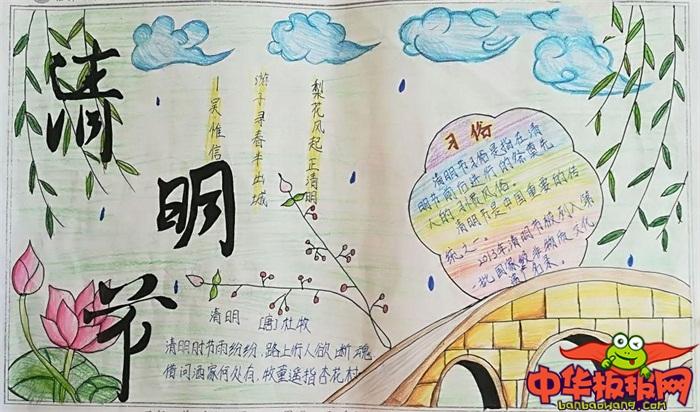 清明节
梨花风起正清明
游子寻春半出城
——吴惟信
习俗
清明节习俗是指在清
明节前后进行的祭奠先
人的 风俗。
清明节是中国重要的传
统之一。
2013年清明节被列入第
一批国家级非物质文化
遗产
清明 [唐]杜牧
清明时节雨纷纷,路上行人欲断魂
借问酒家何处有,牧童遥指杏花村
中华板报网
banbaowang.com